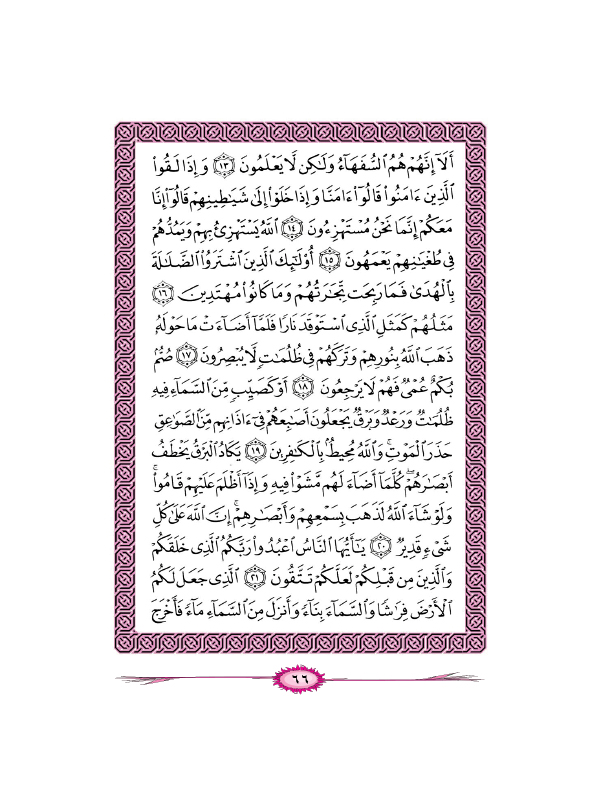 أَلَآ إِنَّهُمْ هُمُ ٱلسُّفَهَآءُ وَلَٰكِن لَّا يَعْلَمُونَ ﴿١٣﴾ وَإِذَا لَقُوا۟
ٱلَّذِينَ ءَامَنُوا۟ قَالُوٓا۟ ءَامَنَّا وَإِذَا خَلَوْا۟ إِلَىٰ شَيَٰطِينِهِمْ قَالُوٓا۟ إِنَّا
مَعَكُمْ إِنَّمَا نَحْنُ مُسْتَهْزِءُونَ ﴿١٤﴾ ٱللَّهُ يَسْتَهْزِئُ بِهِمْ وَيَمُدُّهُمْ
فِى طُغْيَٰنِهِمْ يَعْمَهُونَ ﴿١٥﴾ أُو۟لَٰٓئِكَ ٱلَّذِينَ ٱشْتَرَوُا۟ ٱلضَّلَٰلَةَ
بِٱلْهُدَىٰ فَمَا رَبِحَت تِّجَٰرَتُهُمْ وَمَا كَانُوا۟ مُهْتَدِينَ ﴿١٦﴾
مَثَلُهُمْ كَمَثَلِ ٱلَّذِى ٱسْتَوْقَدَ نَارًا فَلَمَّآ أَضَآءَتْ مَا حَوْلَهُۥ
ذَهَبَ ٱللَّهُ بِنُورِهِمْ وَتَرَكَهُمْ فِى ظُلُمَٰتٍ لَّا يُبْصِرُونَ ﴿١٧﴾ صُمٌّۢ
بُكْمٌ عُمْىٌ فَهُمْ لَا يَرْجِعُونَ ﴿١٨﴾ أَوْ كَصَيِّبٍ مِّنَ ٱلسَّمَآءِ فِيهِ
ظُلُمَٰتٌ وَرَعْدٌ وَبَرْقٌ يَجْعَلُونَ أَصَٰبِعَهُمْ فِىٓ ءَاذَانِهِم مِّنَ ٱلصَّوَٰعِقِ
حَذَرَ ٱلْمَوْتِ ۚ وَٱللَّهُ مُحِيطٌۢ بِٱلْكَٰفِرِينَ ﴿١٩﴾ يَكَادُ ٱلْبَرْقُ يَخْطَفُ
أَبْصَٰرَهُمْ ۖ كُلَّمَآ أَضَآءَ لَهُم مَّشَوْا۟ فِيهِ وَإِذَآ أَظْلَمَ عَلَيْهِمْ قَامُوا۟ ۚ
وَلَوْ شَآءَ ٱللَّهُ لَذَهَبَ بِسَمْعِهِمْ وَأَبْصَٰرِهِمْ ۚ إِنَّ ٱللَّهَ عَلَىٰ كُلِّ
شَىْءٍ قَدِيرٌ ﴿٢٠﴾ يَٰٓأَيُّهَا ٱلنَّاسُ ٱعْبُدُوا۟ رَبَّكُمُ ٱلَّذِى خَلَقَكُمْ
وَٱلَّذِينَ مِن قَبْلِكُمْ لَعَلَّكُمْ تَتَّقُونَ ﴿٢١﴾ ٱلَّذِى جَعَلَ لَكُمُ
ٱلْأَرْضَ فِرَٰشًا وَٱلسَّمَآءَ بِنَآءً وَأَنزَلَ مِنَ ٱلسَّمَآءِ مَآءً فَأَخْرَجَ
٦٦